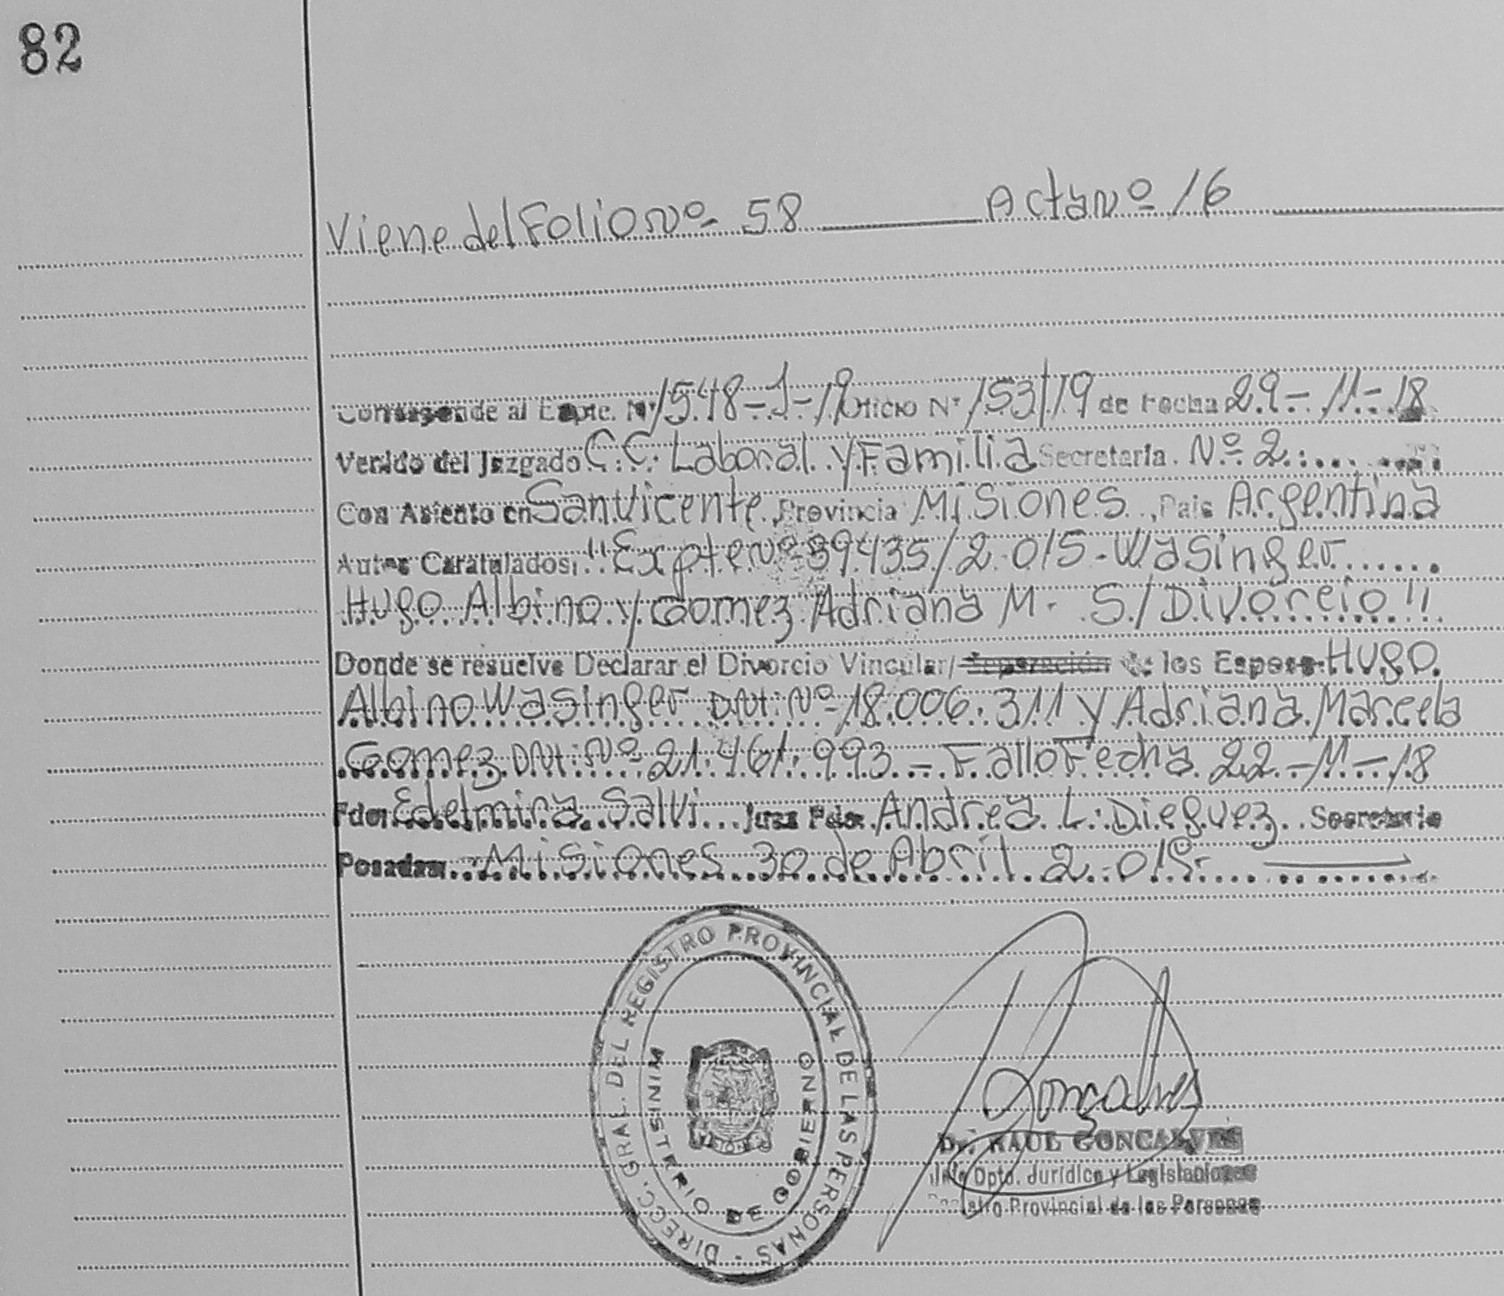 82
Viene del Folio Nº 58 Acta Nº 16
Corresponde al Expte. Nº 1548-J-19 Oficio Nº 153/19 de Fecha 29-11-18
Venido del Juzgado C.C. Laboral y Familia Secretaria Nº 2
Con Asiento en San Vicente, Provincia Misiones, Pais Argentina
Autos Caratulados, "Expte Nº 39435/2.015-Wasinger
Hugo Albino y Gomez Adriana M. S/Divorcio"
Donde se resuelve Declarar el Divorcio Vincular/Separación de los Esposos Hugo
Albino Wasinger DNI: Nº 18.006.311 y Adriana Marcela
Gomez DNI: Nº 21.461.993.- Fallo Fecha 22-11-18
Fdo: Edelmira Salvi Juez Fdo: Andrea L. Dieguez Secretario
Posadas Misiones 30 de Abril 2.019.
DIRECC. GRAL. DEL REGISTRO PROVINCIAL DE LAS PERSONAS -
MINISTERIO DE GOBIERNO
Gonçalves
Dr. RAUL GONCALVES
Jefe Dpto. Jurídico y Legislaciones
Registro Provincial de las Personas